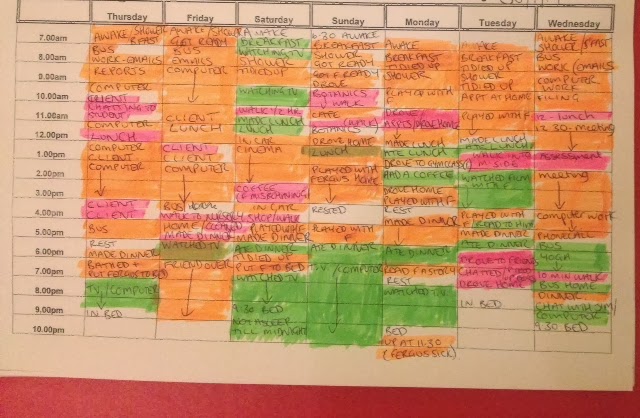 Thursday
Friday
Saturday
Sunday
Monday
Tuesday
Wednesday
7.00am
8.00am
9.00am
10.00am
11.00am
12.00pm
1.00pm
2.00pm
3.00pm
4.00pm
5.00pm
6.00pm
7.00pm
8.00pm
9.00pm
10.00pm
AWAKE/SHOWER
BUS
WORK-EMAILS
REPORTS
COMPUTER
CLIENT
CHATTING TO
COMPUTER
LUNCH
COMPUTER
CLIENT
COMPUTER
CLIENT
CLIENT
BUS
REST
MADE DINNER
BATHED +
PUT FERGUS TO BED
T.V./COMPUTER
IN BED
AWAKE/SHOWER
GET READY
BUS
EMAILS
COMPUTER
CLIENT
LUNCH
CLIENT
CLIENT
COMPUTER
BUS HOME
WALK TO NURSERY
MADE DINNER
WATCHED TV
FRIEND OVER
AWAKE
BREAKFAST
WATCHING TV
SHOWER
TIDIED UP
WATCHING TV
MADE LUNCH
LUNCH
IN CAR
CINEMA
COFFEE
IN CAR
SHOP/WALK
MADE DINNER
ATE DINNER
TIDIED UP
PUT F TO BED
WATCHED TV
9.30 BED
NOT ASLEEP
TILL MIDNIGHT
6.30 AWAKE
BREAKFAST
SHOWER
GOT READY
GOT F READY
DROVE
BOTANICS
WALK
CAFE
WALK
BOTANICS
DROVE HOME
LUNCH
PLAYED WITH
FERGUS HOME
RESTED
PLAYED WITH
ATE DINNER
T.V./COMPUTER
AWAKE
BREAKFAST
TIDIED UP
SHOWER
PLAYED WITH
DROVE
MADE LUNCH
ATE LUNCH
DROVE TO GYM CLASS
HAD A COFFEE
DROVE HOME
PLAYED WITH F
REST
MADE DINNER
ATE DINNER
READ F A STORY
REST
WATCHED T.V.
BED
UP AT 11.30
(FERGUS SICK)
AWAKE
BREAKFAST
TIDIED UP
SHOWER
TIDIED UP
APPT AT HOME
PLAYED WITH F
MADE LUNCH
ATE LUNCH
WATCHED FILM
WITH F
PLAYED WITH
MADE DINNER
ATE DINNER
DROVE TO FRIEND
CHATTED
DROVE HOME
IN BED
AWAKE
SHOWER/B'FAST
BUS
WORK/EMAILS
COMPUTER
WORK
FILING
12 - lunch
12.30 - meeting
assessment
meeting
computer work
PHONECALL
BUS
YOGA
10 MIN WALK
BUS HOME
DINNER
CHAT WITH JIM/
COMPUTER
9.30 BED